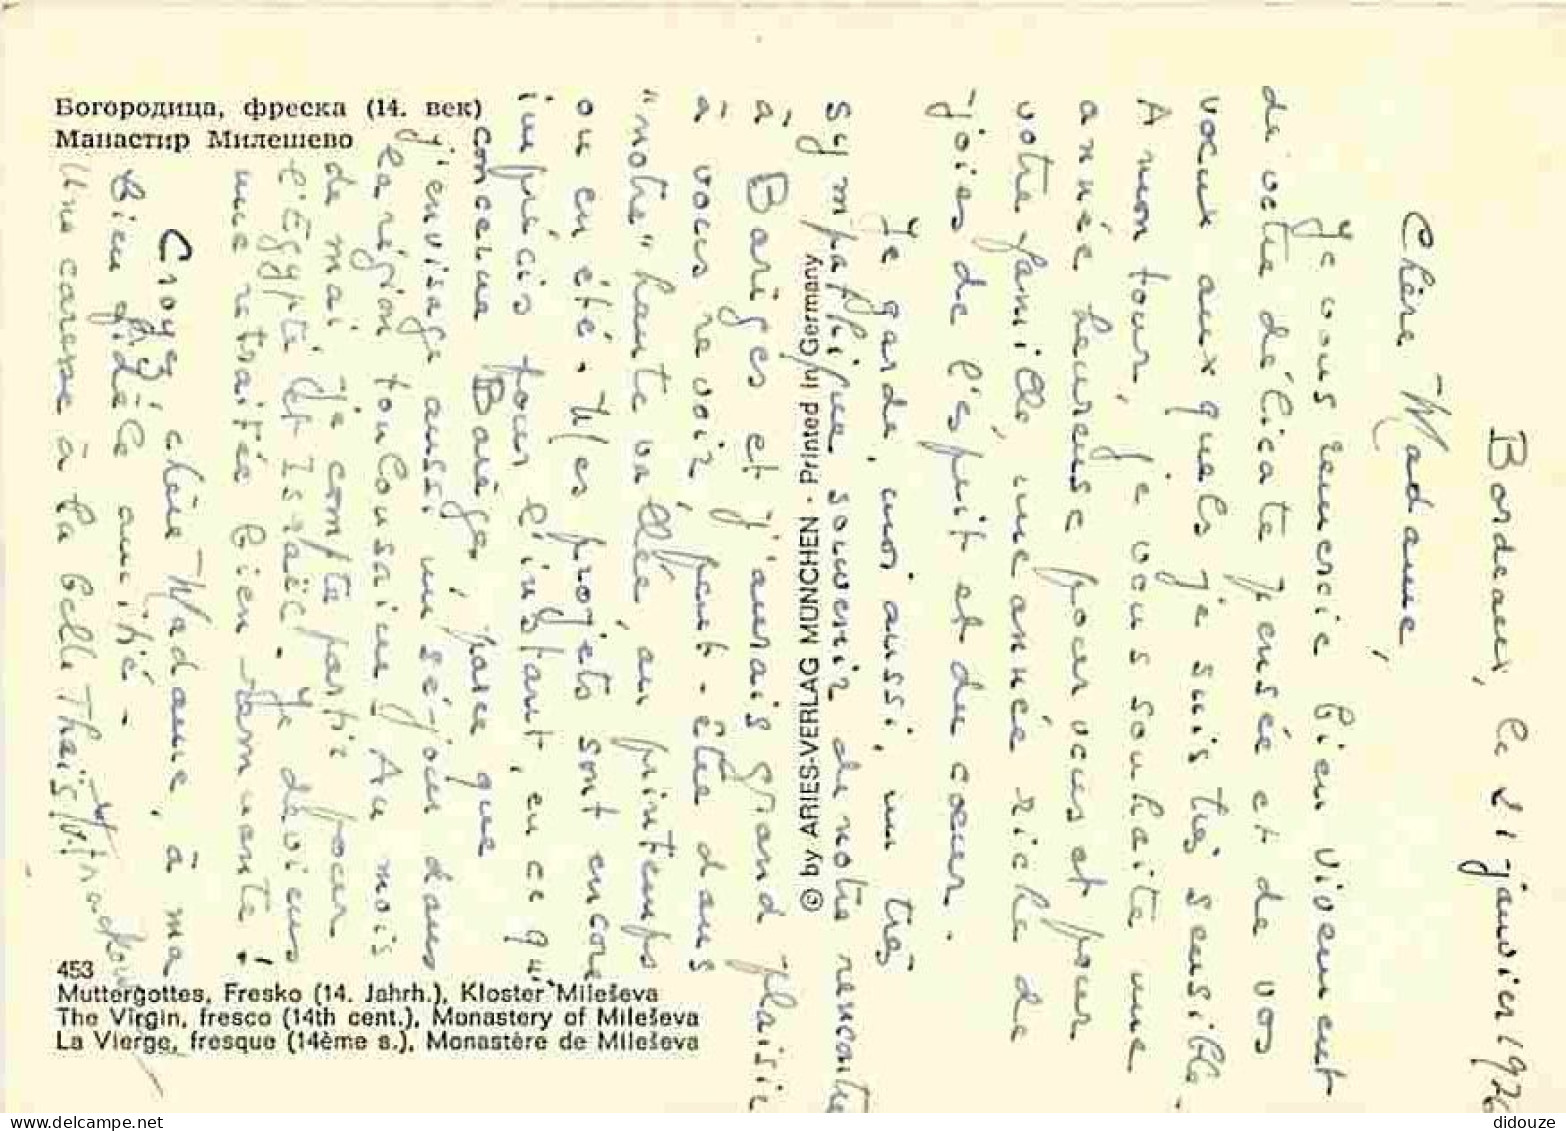 Богородица, фреска (14. век)
Манастир Милешево
Bordeaux, le 21 janvier 1976
Chère Madame,
Je vous remercie bien vivement
de votre délicate pensée et de vos
voeux auxquels je suis très sensible.
A mon tour, je vous souhaite une
année heureuse pour vous et pour
votre famille, une année riche de
joies de l'esprit et du coeur.
Je garde, moi aussi, un très
sympathique souvenir de notre rencontre
à Barèges et j'aurais grand plaisir
à vous revoir, peut-être dans
"notre" haute vallée, au printemps
ou en été. Mes projets sont encore
imprécis pour l'instant, en ce qui
concerne Barèges, parce que
j'envisage aussi un séjour dans
la région toulousaine. Au mois
de mai je compte partir pour
l'Egypte et Israël. Je deviens
une retraitée bien remuante!
Croyez, chère Madame, à ma
bien fidèle amitié.
Une caresse à la belle Thaïs
© by ARIES-VERLAG MÜNCHEN - Printed in Germany
453
Muttergottes, Fresko (14. Jahrh.), Kloster Mileševa
The Virgin, fresco (14th cent.), Monastery of Mileševa
La Vierge, fresque (14ème s.), Monastère de Mileševa
didouze